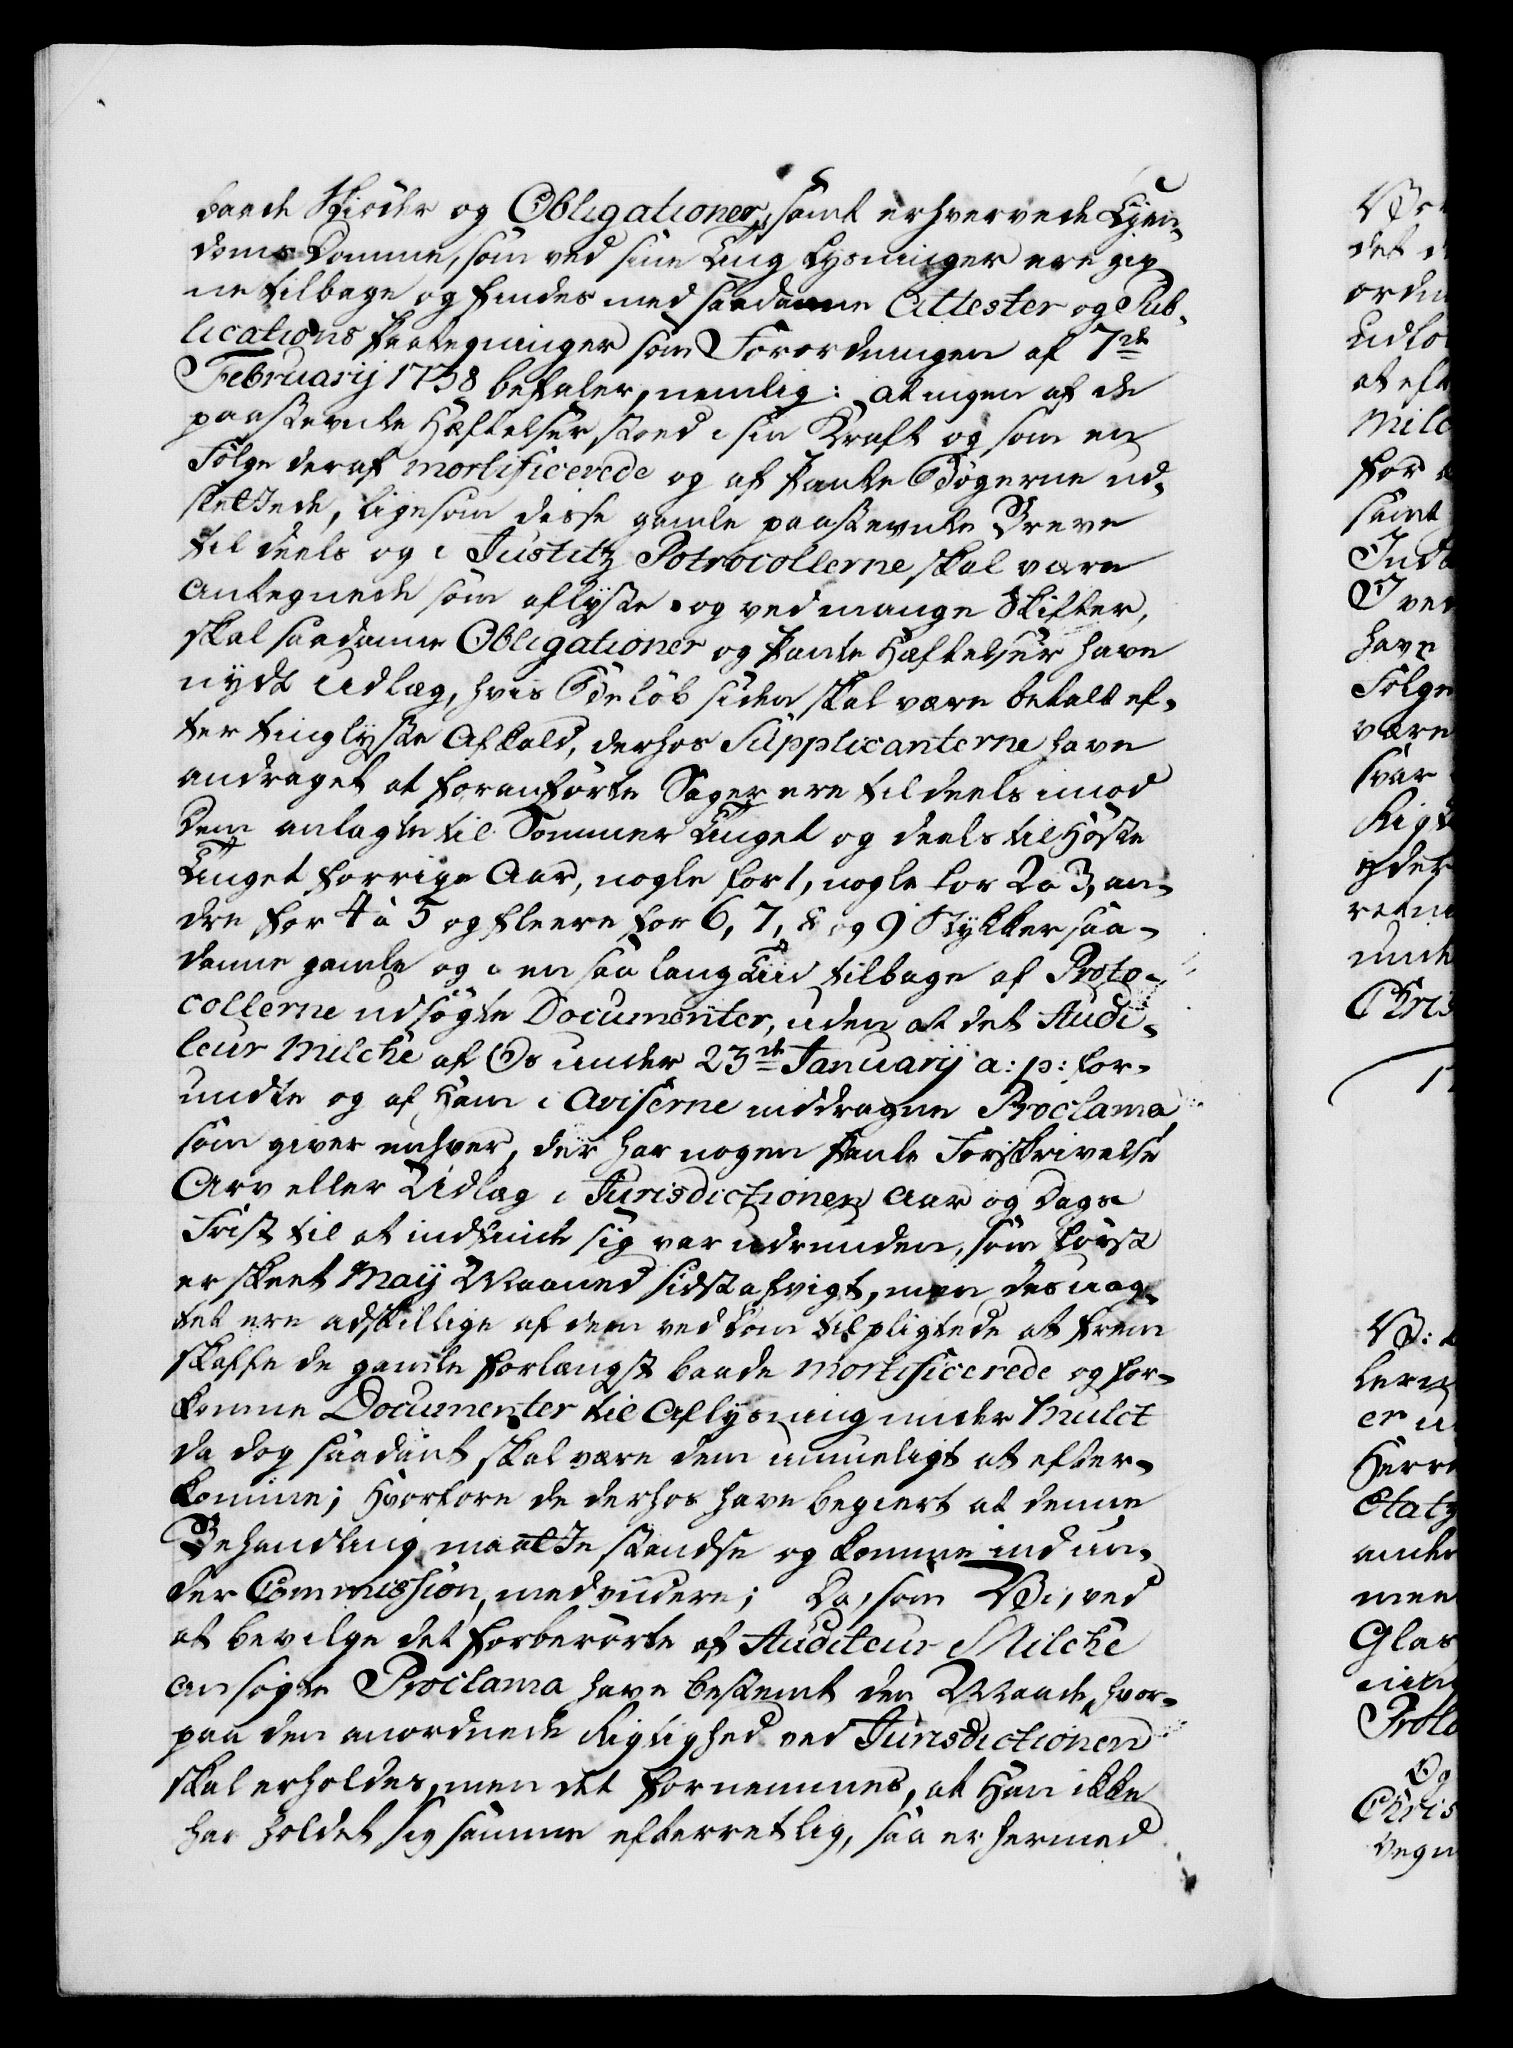 baade Skiöder og Obligationer, samt erhvervede Eyen-
doms Domme, som ved sine Ting Lysninger ere giv
ne tilbage og findes med saadanne Attester og Pub-
lications Paategninger som Forordningen af 7de
Februarij 1738 befaler, nemlig: at ingen af de
paastevnte Hæftelser stoed i sin Kraft og som en
Følge deraf mortificerede og af Pante Bögerne ud-
slettede, ligesom disse gamle paastevnte Breve
til deels og i Justitz Potrocollerne skal være
antegnede som aflyste og ved mange Skifter,
skal saadanne Obligationer og Pante Hæftelser have
nydt Udlæg, hvis Beløb siden skal være betalt ef-
ter tinglyste Afkald, derhos Supplicanterne have
andraget at foranförte Sager ere til deels imod
Dem anlagte til Sommer Tinget og deels til Höste
Tinget forrige Aar, nogle for 1, nogle for 2 a 3, an-
dre for 4 à 5 og fleere for 6, 7, 8 og 9 Stykker saa-
danne gamle og a en saa lang Tiid tilbage af Proto-
collerne udsögte Documenter, uden at det Audi-
teur Milche af Os under 23de Januarij a: p: for-
undte og af Ham i Aviserne inddragne Proclama
som giver enhver, der har nogen Pante Forskrivelse
Arv eller Udlæg i Jurisdictionen Aar og Dags
Frist til at indfinde sig var udrunden, som först
er skeet Maij Maaned sidst afvigt, men des uag-
tet ere adskillige af dem ved Dom tilpligtede at frem
skaffe de gamle forlængst baade mortificerede og for-
komne Documenter til Aflysning under Mulct
da dog saadant skal være dem umueligt at efter-
komme; Hvorfore de derhos have begiert at denne
Behandling maatte standse og komme ind un-
der Commission, med viidere; Da, som Vi, ved
at bevilge det forberörte af Auditeur Milche
ansögte Proclama have bestemt den Maade, hvor-
paa den anordnede Rigtighed ved Jurisdictionen
skal erholdes, men det fornemmes, at Han ikke
har holdet sig samme efterretlig, saa er hermed